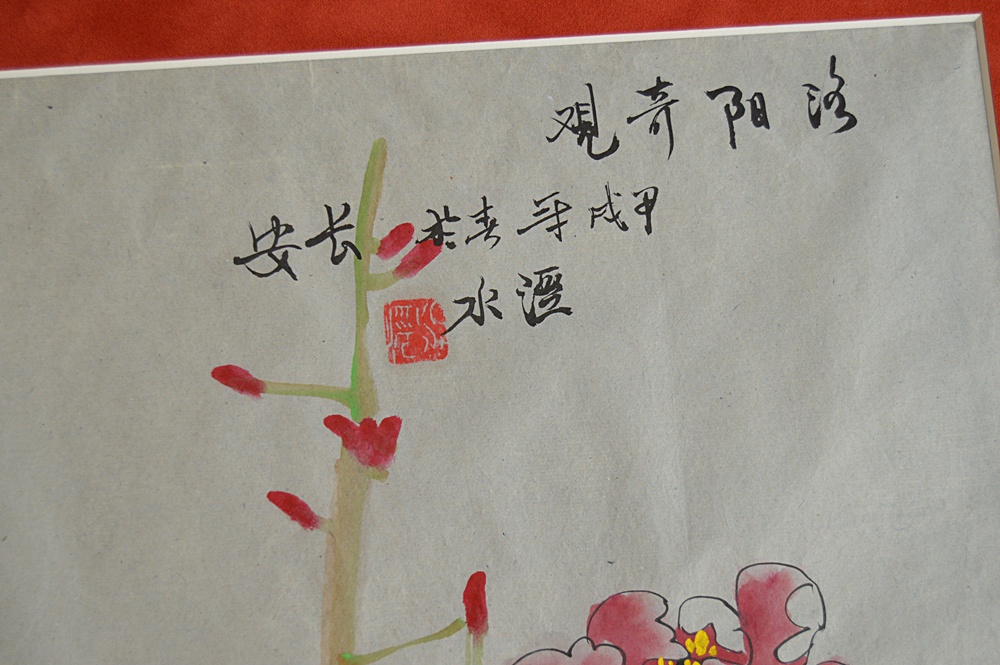 洛阳奇观
甲戌年春於长安
水